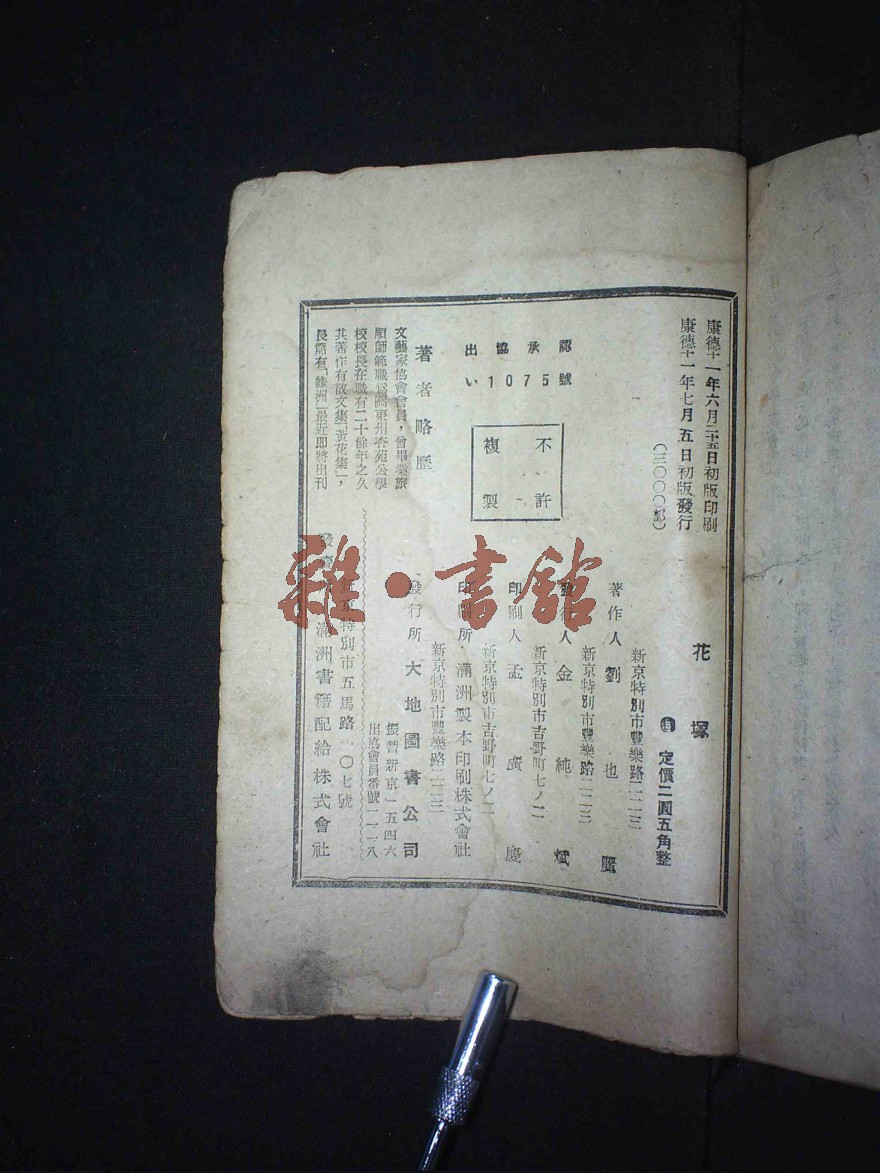 康德十一年六月二十五日初版印刷
康德十一年七月五日初版發行
(三〇〇〇部)
花塚
定價二圓五角整
新京特別市豐樂路二二三
著作人 劉也廣
新京特別市豐樂路二二三
發行人 金純斌
新京特別市吉野町七ノ二
印刷人 孟廣慶
新京特別市吉野町七ノ二
印刷所 滿洲製本印刷株式會社
新京特別市豐樂路二二三
發行所 大地圖書公司
振替新京一五四六
出協會員番號一一二八
新京特別市五馬路一〇七號
滿洲書籍配給株式會社
出協承認
い1075號
不許
複製
著者略歷
文藝家協會會員,曾畢業旅
順師範職爲關東州杏苑公學
校校長在職有二十餘年之久
其著作有散文集「黃花集」,
長篇有「綠洲」最近即將出刊
雜·書館